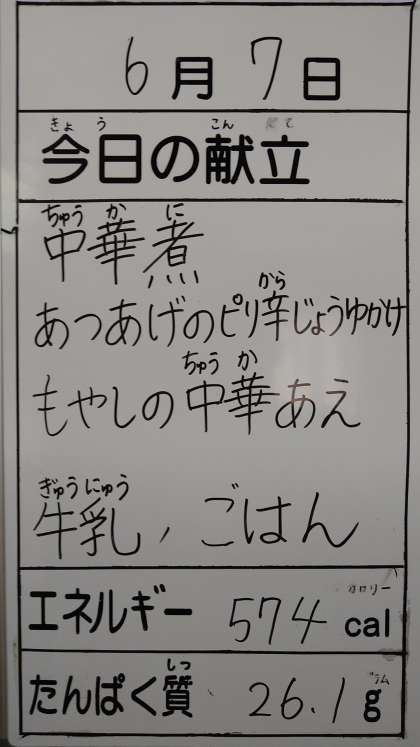 6月7日
きょう こん だて
今日の献立
ちゅう か に
中華煮
から
あつあげのピリ辛じょうゆかけ
ちゅう か
もやしの中華あえ
ぎゅうにゅう
牛乳、ごはん
カロリー
エネルギー 574 cal
しつ グラム
たんぱく質 26.1 g